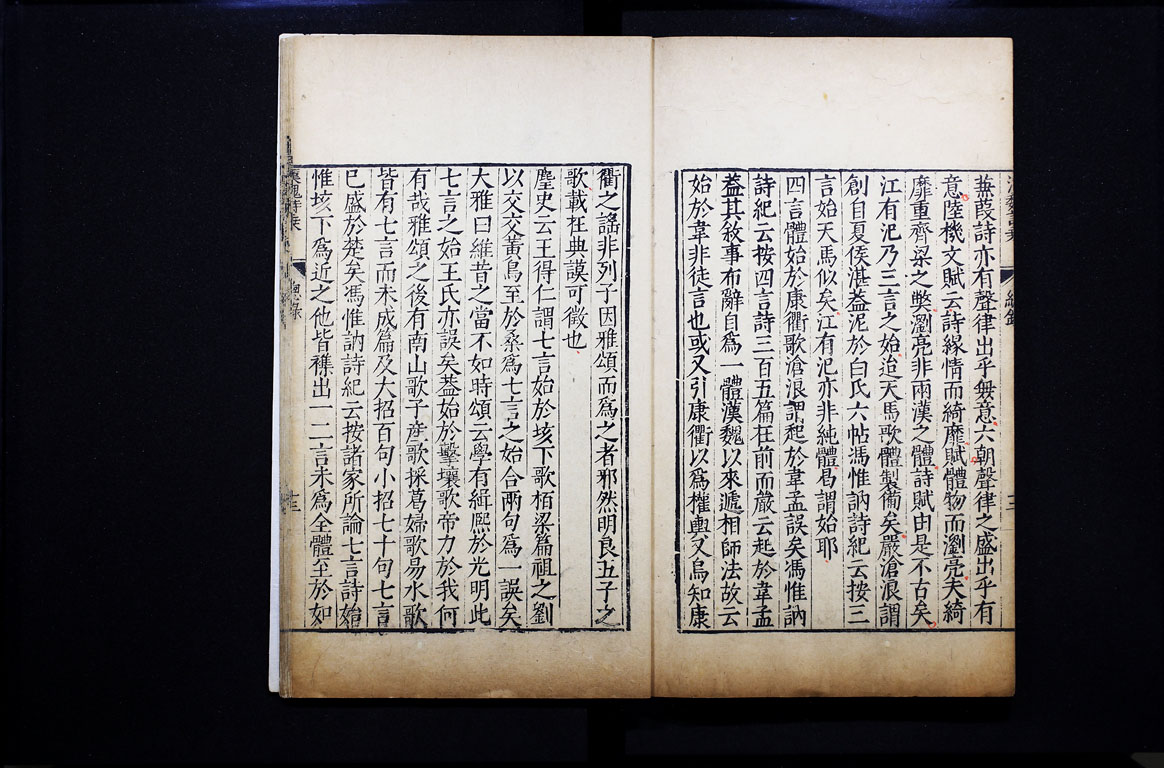 蒹葭詩亦有聲律出乎無意六朝聲律之盛出乎有
意陸機文賦云詩緣情而綺靡賦體物而瀏亮夫綺
靡重齊梁之獘瀏亮非兩漢之體詩賦由是不古矣
江有汜乃三言之始迨天馬歌體製僃矣嚴滄浪謂
創自夏侯湛葢泥於白氏六帖馮惟訥詩紀云按三
言始天馬似矣江有汜亦非純體曷謂始耶
四言體始於康衢歌滄浪謂起於韋孟誤矣馮惟訥
詩紀云按四言詩三百五篇在前而嚴云起於韋孟
葢其敘事布辭自為一體漢魏以來遞相師法故云
始於韋非徒言也或又引康衢以為權輿又烏知康
衢之謠非列子因雅頌而為之者邪然明良五子之
歌載在典謨可徵也
麈史云王得仁謂七言始於垓下歌栢梁篇祖之劉
以交交黃鳥至於桑為七言之始合兩句為一誤矣
大雅曰維昔之富不如時頌云學有緝熙於光明此
七言之始王氏亦誤矣葢始於擊壤歌帝力於我何
有哉雅頌之後有南山歌子產歌採葛婦歌易水歌
皆有七言而未成篇及大招百句小招七十句七言
已盛於楚矣馮惟訥詩紀云按諸家所論七言詩始
惟垓下為近之他皆襍出一二言未為全體至於如
總錄
十三